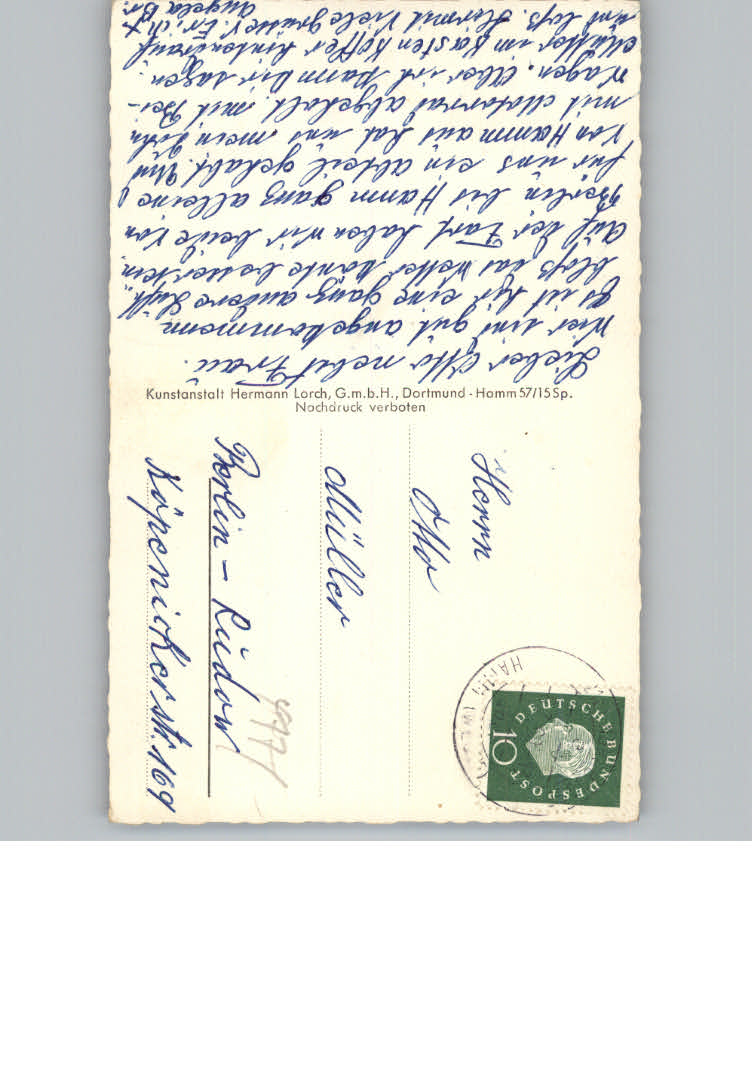 Lieber Otto nebst Frau.
Wier sind gut angekommen
Es ist hir eine ganz andere Luft
blohs das Wetter könte besser sein.
Auf der Fart haben wir beide von
Berlin bis Hamm ganz alleine
für uns ein abteil gehabt. Und
von Hamm aus hat uns mein Sohn
mit Motorrad abgeholt mit Bei-
wagen. Aber ich kann Dir sagen.
Mutter im Kasten Koffer hintendrauf
und los. Hirmit Viele Grüsse v. Erich &
Angela Br.
Kunstanstalt Hermann Lorch, G.m.b.H., Dortmund - Hamm 57/15 Sp.
Nachdruck verboten
Herrn
Otto
Müller
Berlin – Rudow
Köpenickerstr. 169
DEUTSCHE BUNDESPOST
10
HAMM (WESTF